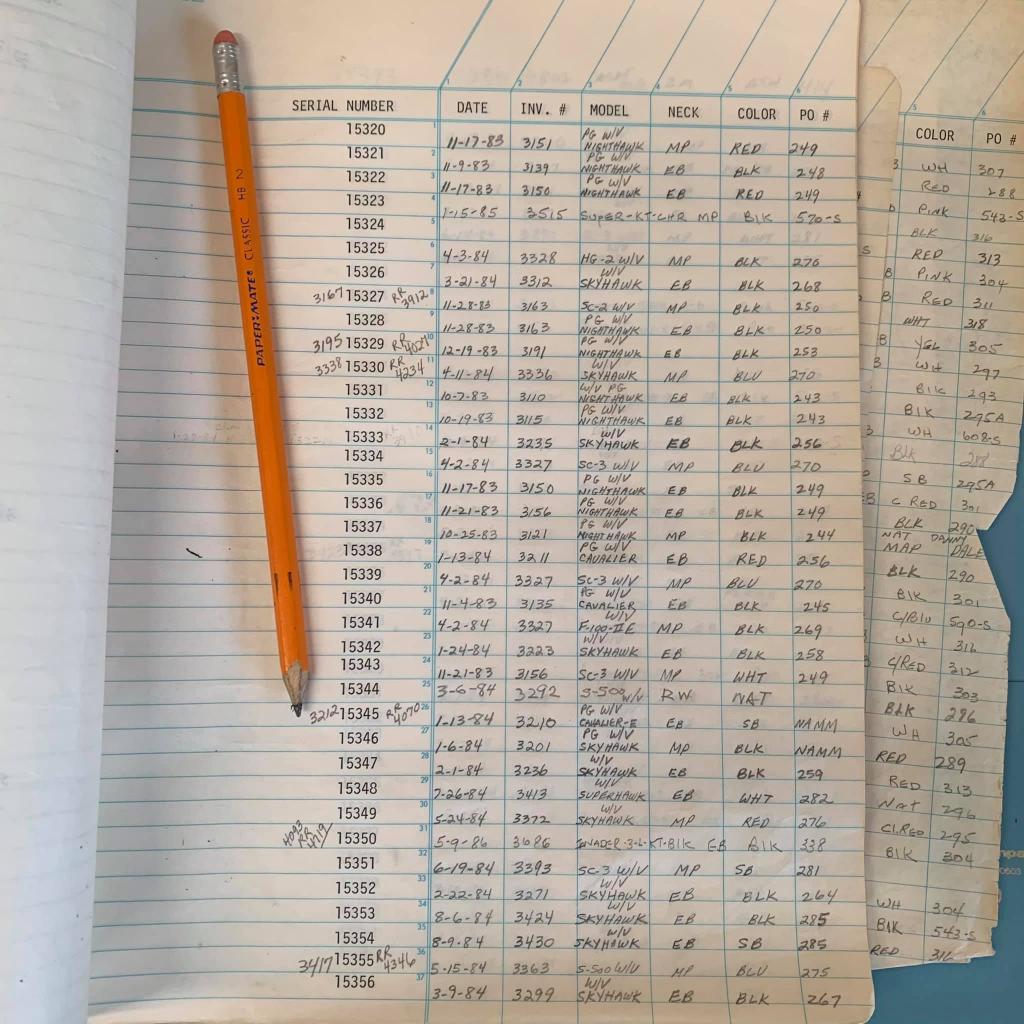 SERIAL NUMBER DATE INV. # MODEL NECK COLOR PO #
15320 11-17-83 3151 PG W/V NIGHTHAWK MP RED 249
15321 11-9-83 3139 PG W/V NIGHTHAWK EB BLK 248
15322 11-17-83 3150 PG W/V NIGHTHAWK EB RED 249
15323 1-15-85 3515 SUPER-KT-CHR MP BlK 570-S
15324
15325 4-3-84 3328 HG-2 W/V MP BLK 270
15326 3-21-84 3312 W/V SKYHAWK EB BLK 268
3167 15327 RR 3912 11-28-83 3163 SC-2 W/V MP BLK 250
15328 11-28-83 3163 PG W/V NIGHTHAWK EB BLK 250
3195 15329 RR 12-19-83 3191 PG W/V NIGHTHAWK EB BLK 253
3338 15330 RR 4234 4-11-84 3336 W/V SKYHAWK MP BLU 270
15331 10-7-83 3110 W/V PG NIGHTHAWK EB BLK 243
15332 10-19-83 3115 PG W/V NIGHTHAWK EB BLK 243
15333 2-1-84 3235 W/V SKYHAWK EB BLK 256
15334 4-2-84 3327 SC-3 W/V MP BLU 270
15335 11-17-83 3150 PG W/V NIGHTHAWK EB BLK 249
15336 11-21-83 3156 PG W/V NIGHTHAWK EB BLK 249
15337 10-25-83 3121 PG W/V NIGHTHAWK MP BLK 244
15338 1-13-84 3211 PG W/V CAVALIER EB RED 256
15339 4-2-84 3327 SC-3 W/V MP BLU 270
15340 11-4-83 3135 PG W/V CAVALIER EB BLK 245
15341 4-2-84 3327 W/V F-100-IIE MP BLK 269
15342 1-24-84 3223 W/V SKYHAWK EB BLK 258
15343 11-21-83 3156 SC-3 W/V MP WHT 249
15344 3-6-84 3292 S-500 W/V RW NAT
3212 15345 RR 4070 1-13-84 3210 PG W/V CAVALIER-E EB SB NAMM
15346 1-6-84 3201 PG W/V SKYHAWK MP BLK NAMM
15347 2-1-84 3236 W/V SKYHAWK EB BLK 259
15348 7-26-84 3413 W/V SUPERHAWK EB WHT 282
15349 5-24-84 3372 W/V SKYHAWK MP RED 276
4093 RR 4719 15350 5-9-86 3686 INVADER-3-L-KT-BlK EB BlK 338
15351 6-19-84 3393 SC-3 W/V MP SB 281
15352 2-22-84 3271 W/V SKYHAWK EB BLK 264
15353 8-6-84 3424 W/V SKYHAWK EB BLK 285
15354 8-9-84 3430 W/V SKYHAWK EB SB 285
3417 15355 RR 4346 5-15-84 3363 S-500 W/V MP BLU 275
15356 3-9-84 3299 W/V SKYHAWK EB BLK 267
PAPER:MATE® CLASSIC HB 2
COLOR PO #
WH 307
RED 288
PINK 543-S
BLK 316
RED 313
PINK 304
RED 311
WHT 318
YEL 305
WH 297
BlK 293
BlK 295A
WH 608-S
BlK 288
SB 295A
C RED 301
BLK 290
NAT DANNY
MAP DALE
BLK 290
BlK 301
C/Blu 590-S
WH 316
C/RED 312
BlK 303
BLK 296
WH 305
RED 289
RED 313
NAT 296
C/RED 295
BlK 304
WH 304
BlK 543-S
RED 316